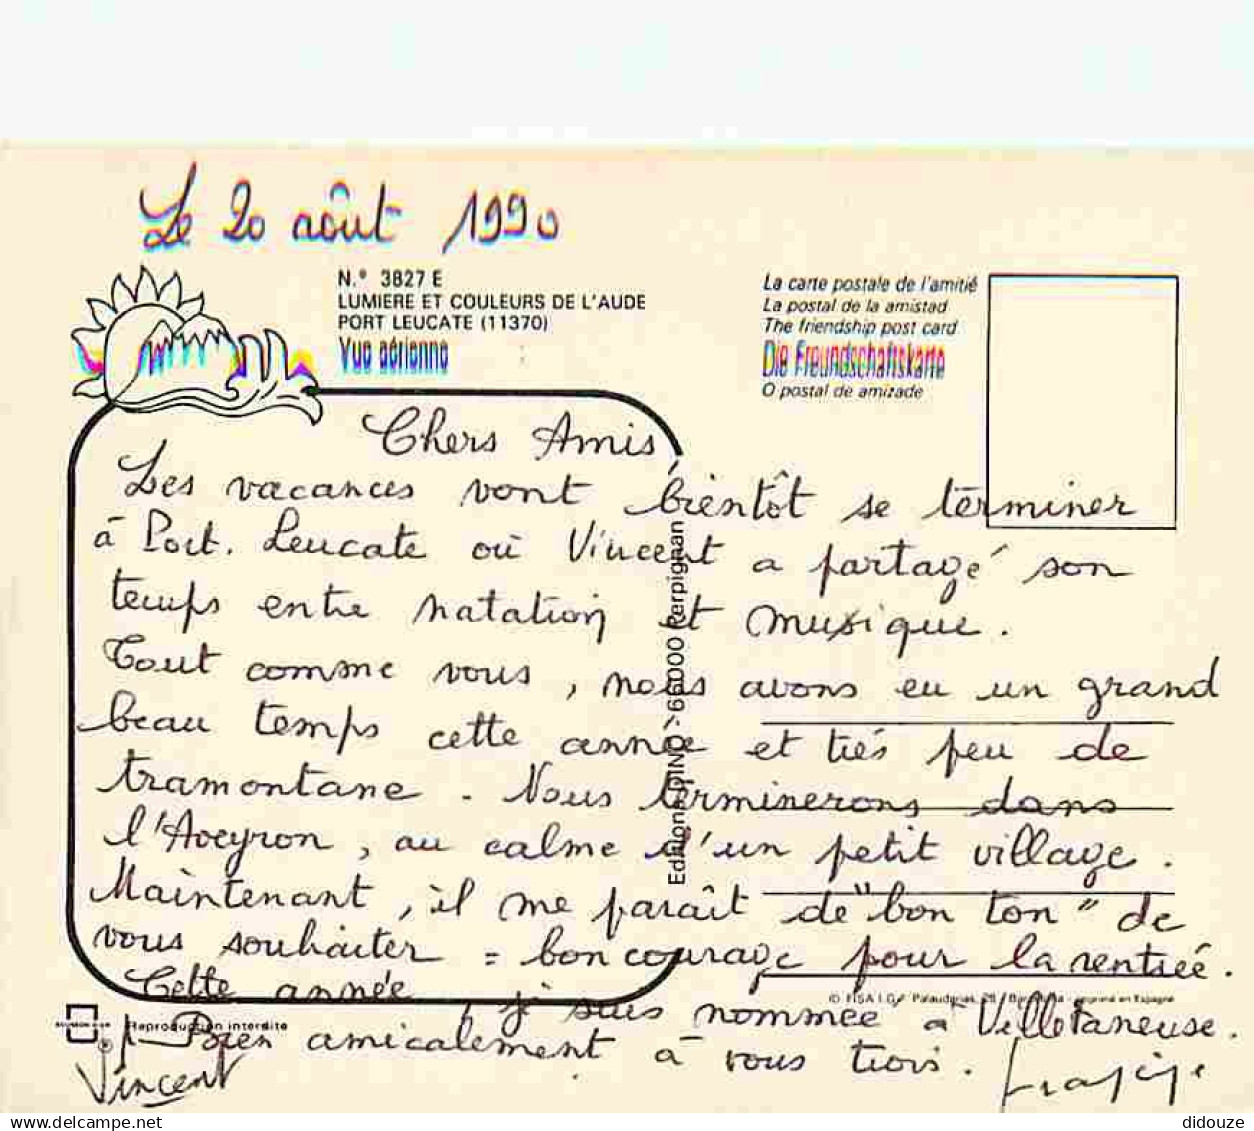 Le 20 août 1990
N.º 3827 E
LUMIERE ET COULEURS DE L'AUDE
PORT LEUCATE (11370)
Vue aérienne
La carte postale de l'amitié
La postal de la amistad
The friendship post card
Die Freundschaftskarte
O postal de amizade
Chers Amis,
Les vacances vont bientôt se terminer
à Port. Leucate où Vincent a partagé son
temps entre natation et musique.
Tout comme vous, nous avons eu un grand
beau temps cette année et très peu de
tramontane. Nous terminerons dans
l'Aveyron, au calme d'un petit village.
Maintenant, il me paraît de "bon ton" de
vous souhaiter = bon courage pour la rentrée.
Cette année, j'suis nommée à Villetaneuse.
Bien amicalement à vous trois.
Vincent
Editions DINO - 66000 Perpignan
© FISA I.G. Palaudarias, 26 - Barcelona - Imprimé en Espagne
Reproduction interdite
delcampe.net
didouze